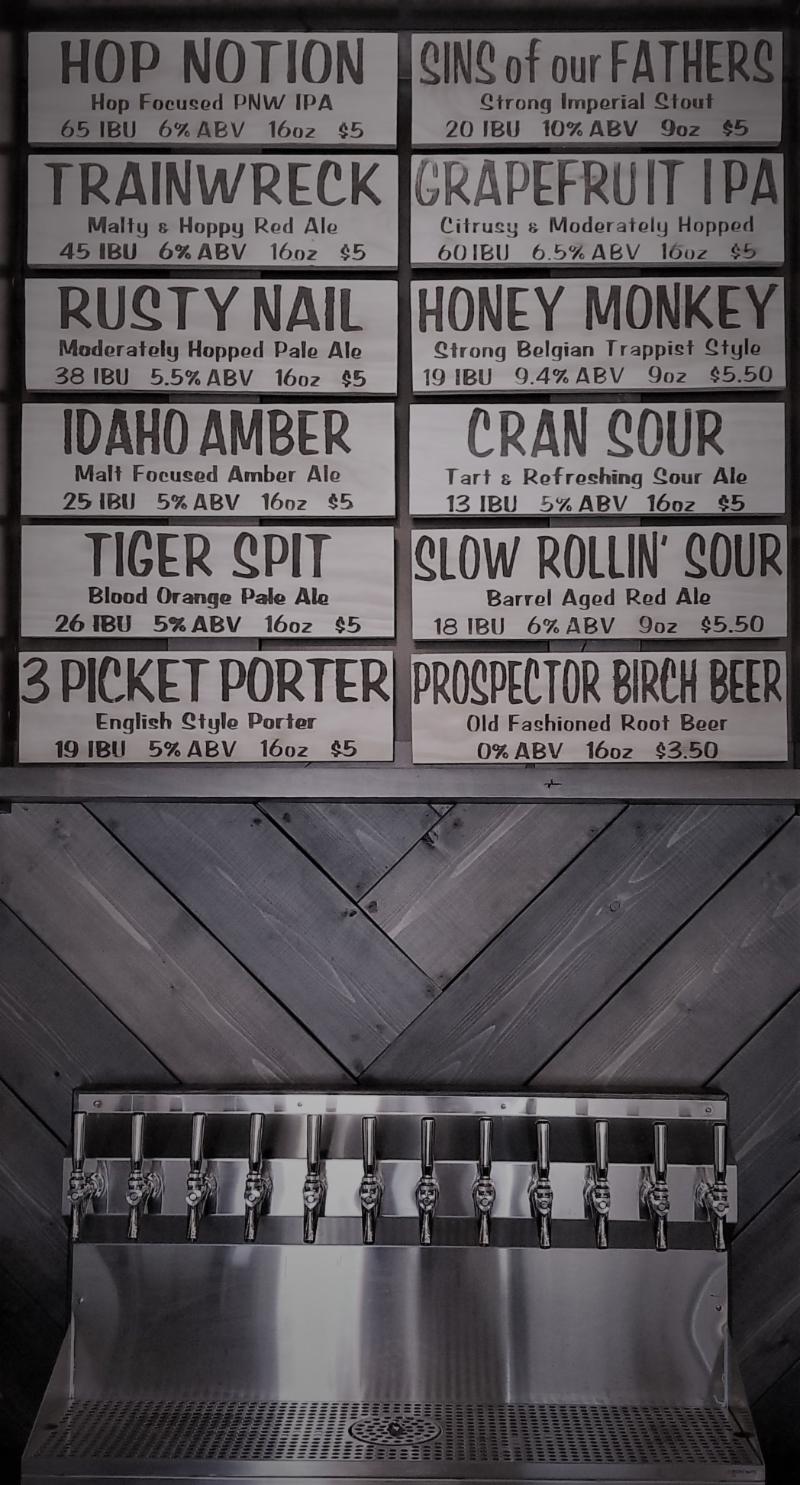 HOP NOTION
Hop Focused PNW IPA
65 IBU 6% ABV 16oz $5
TRAINWRECK
Malty & Hoppy Red Ale
45 IBU 6% ABV 16oz $5
RUSTY NAIL
Moderately Hopped Pale Ale
38 IBU 5.5% ABV 16oz $5
IDAHO AMBER
Malt Focused Amber Ale
25 IBU 5% ABV 16oz $5
TIGER SPIT
Blood Orange Pale Ale
26 IBU 5% ABV 16oz $5
3 PICKET PORTER
English Style Porter
19 IBU 5% ABV 16oz $5
SINS of our FATHERS
Strong Imperial Stout
20 IBU 10% ABV 9oz $5
GRAPEFRUIT IPA
Citrusy & Moderately Hopped
60 IBU 6.5% ABV 16oz $5
HONEY MONKEY
Strong Belgian Trappist Style
19 IBU 9.4% ABV 9oz $5.50
CRAN SOUR
Tart & Refreshing Sour Ale
13 IBU 5% ABV 16oz $5
SLOW ROLLIN' SOUR
Barrel Aged Red Ale
18 IBU 6% ABV 9oz $5.50
PROSPECTOR BIRCH BEER
Old Fashioned Root Beer
0% ABV 16oz $3.50